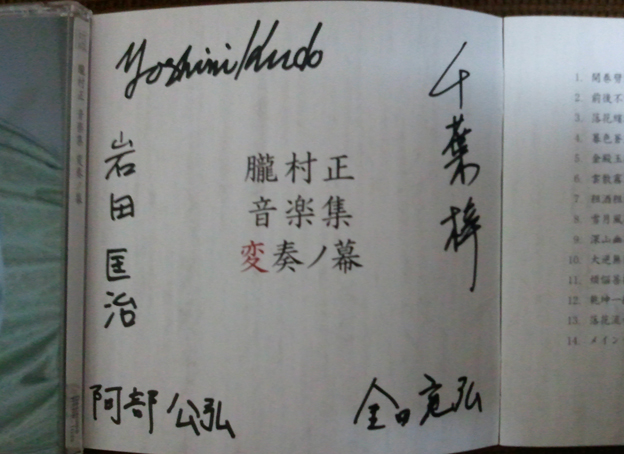 Yoshimi Kudo
千葉梓
岩田匡治
朧村正
音楽集
変奏ノ幕
阿部公弘
金田充弘
朧村正 音楽集 変奏ノ幕
1. 開巻劈
2. 前後不
3. 落花
4. 暮色蒼
5. 金殿玉
6. 雲散霧
7.
8. 雪月風
9. 深山幽
10. 大逆無
11. 煩悩菩
12. 乾坤一
13. 落花流
14. メイン